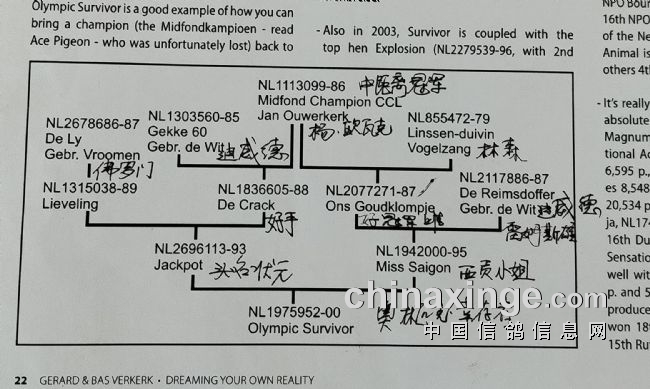 Olympic Survivor is a good example of how you can
bring a champion (the Midfondkampioen - read
Ace Pigeon - who was unfortunately lost) back to
- Also in 2003, Survivor is coupled with the
top hen Explosion (NL2279539-96, with 2nd
NPO Bour
16th NPO
of the Ne
Animal is
others 4th
- It's really
absolute
Magnum
tional Ac
6,595 p.,
es 8,548
20,534 p
ja, NL174
16th Du
Sensatio
well with
p. and 5
produce
won 18t
15th Rut
NL1113099-86
Midfond Champion CCL
Jan Ouwerkerk
中距离冠军
杨·欧瓦克
NL2678686-87
De Ly
Gebr. Vroomen
佛罗门
NL1303560-85
Gekke 60
Gebr. de Wit
迪威德
NL855472-79
Linssen-duivin
Vogelzang
林森
NL1315038-89
Lieveling
NL1836605-88
De Crack
好手
NL2077271-87
Ons Goudklompje
NL2117886-87
De Reimsdoffer
Gebr. de Wit
迪威德
NL2696113-93
Jackpot
头名状元
NL1942000-95
Miss Saigon
西贡小姐
NL1975952-00
Olympic Survivor
chinaxinge.com
中国信鸽信息网
22 GERARD & BAS VERKERK · DREAMING YOUR OWN REALITY